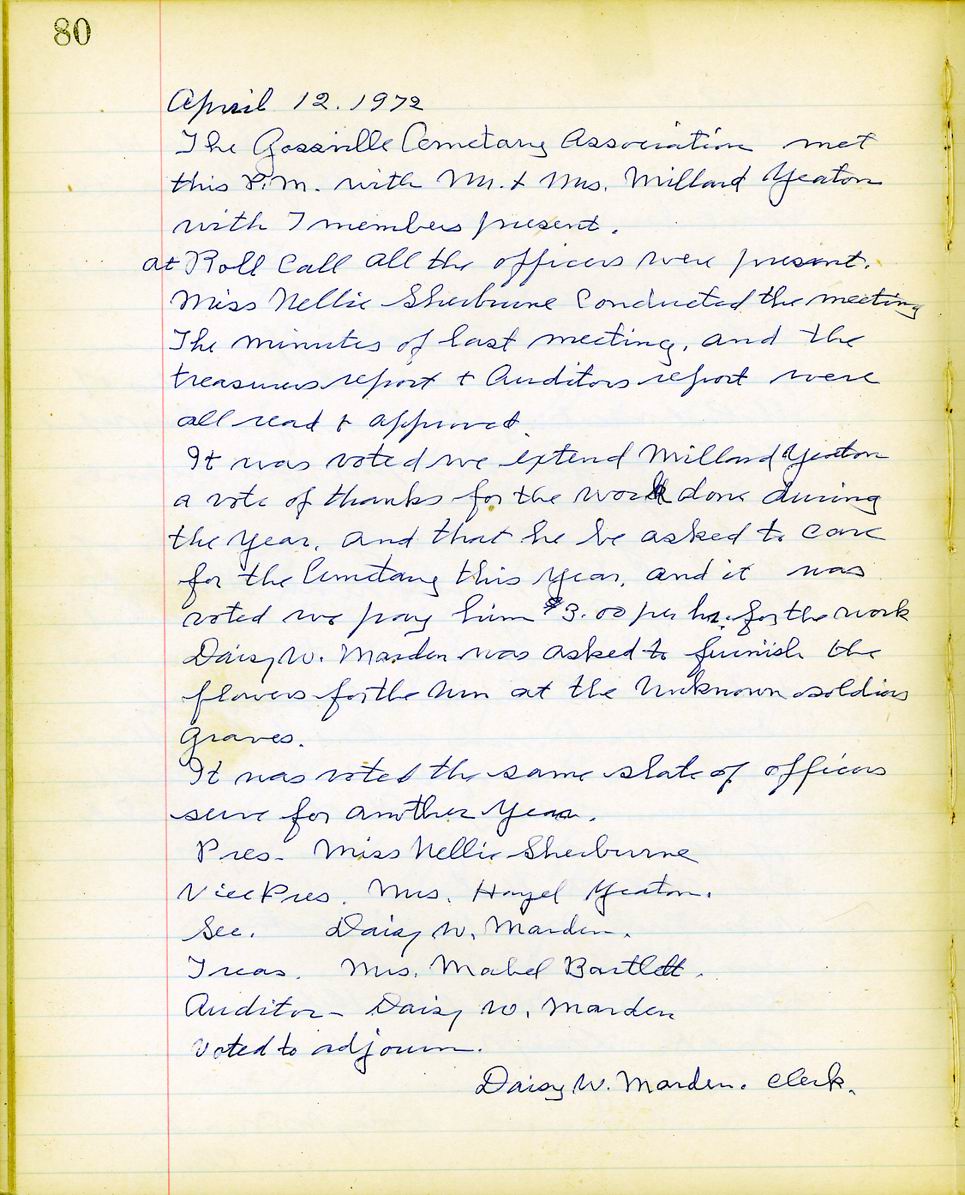 80
April 12. 1972
The Gossville Cemetary Association met
this P.M. with Mr. + Mrs. Millard Yeaton
with 7 members present.
at Roll Call all the officers were present.
Miss Nellie Sherburne Conducted the meeting
The minutes of last meeting, and the
treasurers report + Auditors report were
all read + approved.
It was voted we extend Millard Yeaton
a vote of thanks for the work done during
the year, and that he be asked to care
for the Cemetary this year, and it was
voted we pay him $3.00 per hr. for the work
Daisy W. Marden was asked to furnish the
flowers for the Urn at the Unknown soldiers
graves.
It was voted the same slate of officers
serve for another year.
Pres- Miss Nellie Sherburne
Vice Pres. Mrs. Hazel Yeaton.
Sec. Daisy W. Marden.
Treas. Mrs. Mabel Bartlett.
Auditor- Daisy W. Marden
Voted to adjourn.
Daisy W. Marden. Clerk.